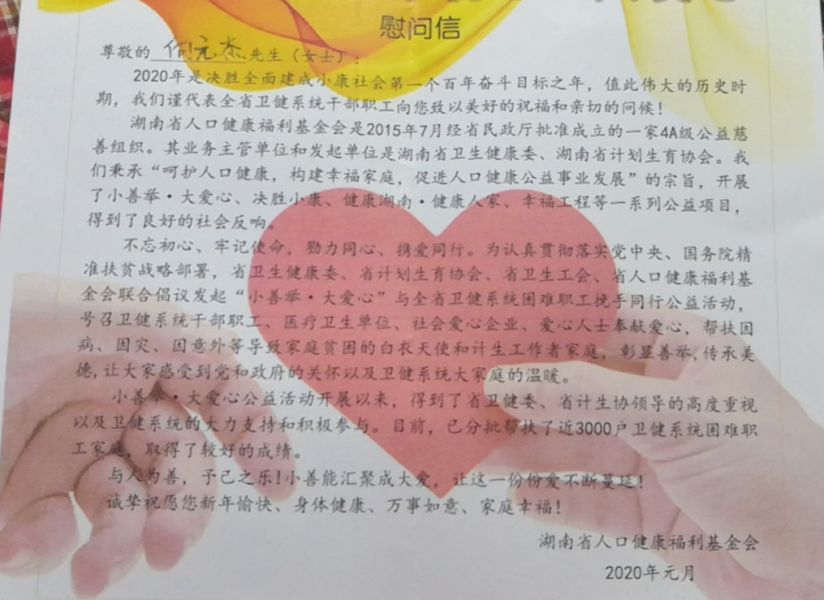 慰问信
尊敬的 何元杰 先生（女士）：
2020年是决胜全面建成小康社会第一个百年奋斗目标之年，值此伟大的历史时
期，我们谨代表全省卫健系统干部职工向您致以美好的祝福和亲切的问候！
湖南省人口健康福利基金会是2015年7月经省民政厅批准成立的一家4A级公益慈
善组织。其业务主管单位和发起单位是湖南省卫生健康委、湖南省计划生育协会。我
们秉承“呵护人口健康，构建幸福家庭，促进人口健康公益事业发展”的宗旨，开展
了小善举·大爱心、决胜小康、健康湖南·健康人家、幸福工程等一系列公益项目，
得到了良好的社会反响。
不忘初心、牢记使命，勠力同心、携爱同行。为认真贯彻落实党中央、国务院精
准扶贫战略部署，省卫生健康委、省计划生育协会、省卫生工会、省人口健康福利基
金会联合倡议发起“小善举·大爱心”与全省卫健系统困难职工挽手同行公益活动，
号召卫健系统干部职工、医疗卫生单位、社会爱心企业、爱心人士奉献爱心，帮扶因
病、因灾、因意外等导致家庭贫困的白衣天使和计生工作者家庭，彰显善举，传承美
德，让大家感受到党和政府的关怀以及卫健系统大家庭的温暖。
小善举·大爱心公益活动开展以来，得到了省卫健委、省计生协领导的高度重视
以及卫健系统的大力支持和积极参与。目前，已分批帮扶了近3000户卫健系统困难职
工家庭，取得了较好的成绩。
与人为善，予己之乐！小善能汇聚成大爱，让这一份份爱不断蔓延！
诚挚祝愿您新年愉快、身体健康、万事如意、家庭幸福！
湖南省人口健康福利基金会
2020年元月